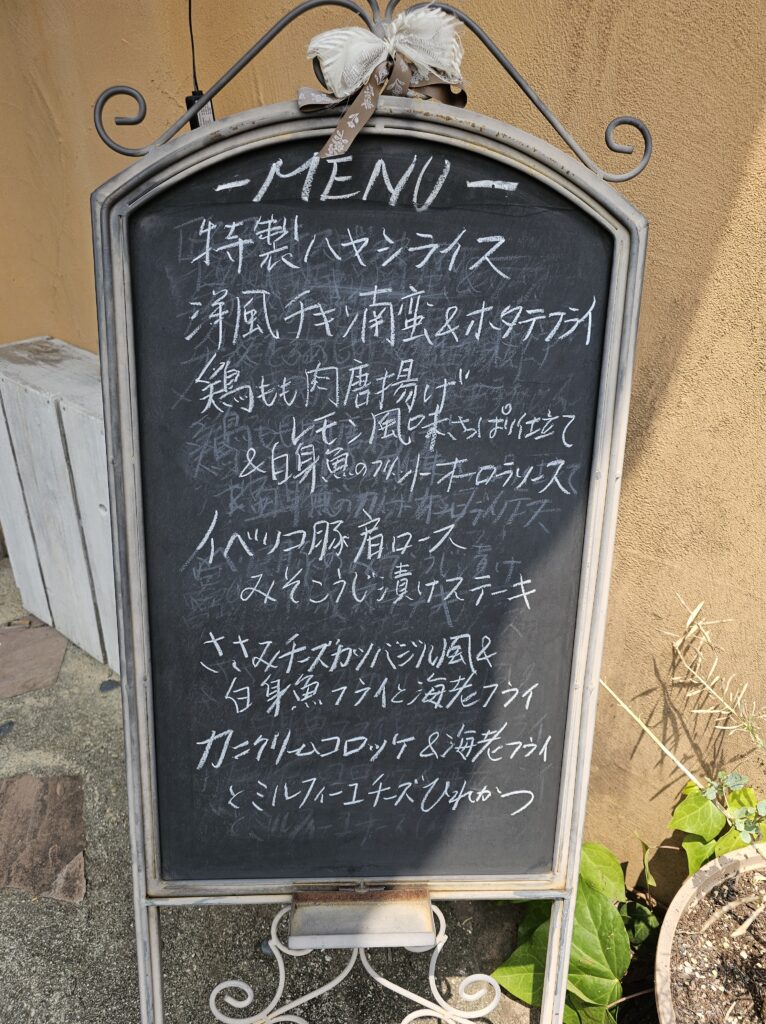 -MENU-
特製ハヤシライス
洋風チキン南蛮&ホタテフライ
鶏もも肉唐揚げ
レモン風味さっぱり仕立て
&白身魚のフリットオーロラソース
イベリコ豚肩ロース
みそこうじ漬けステーキ
ささみチーズカツバジル風&
白身魚フライと海老フライ
カニクリームコロッケ&海老フライ
とミルフィーユチーズひれかつ